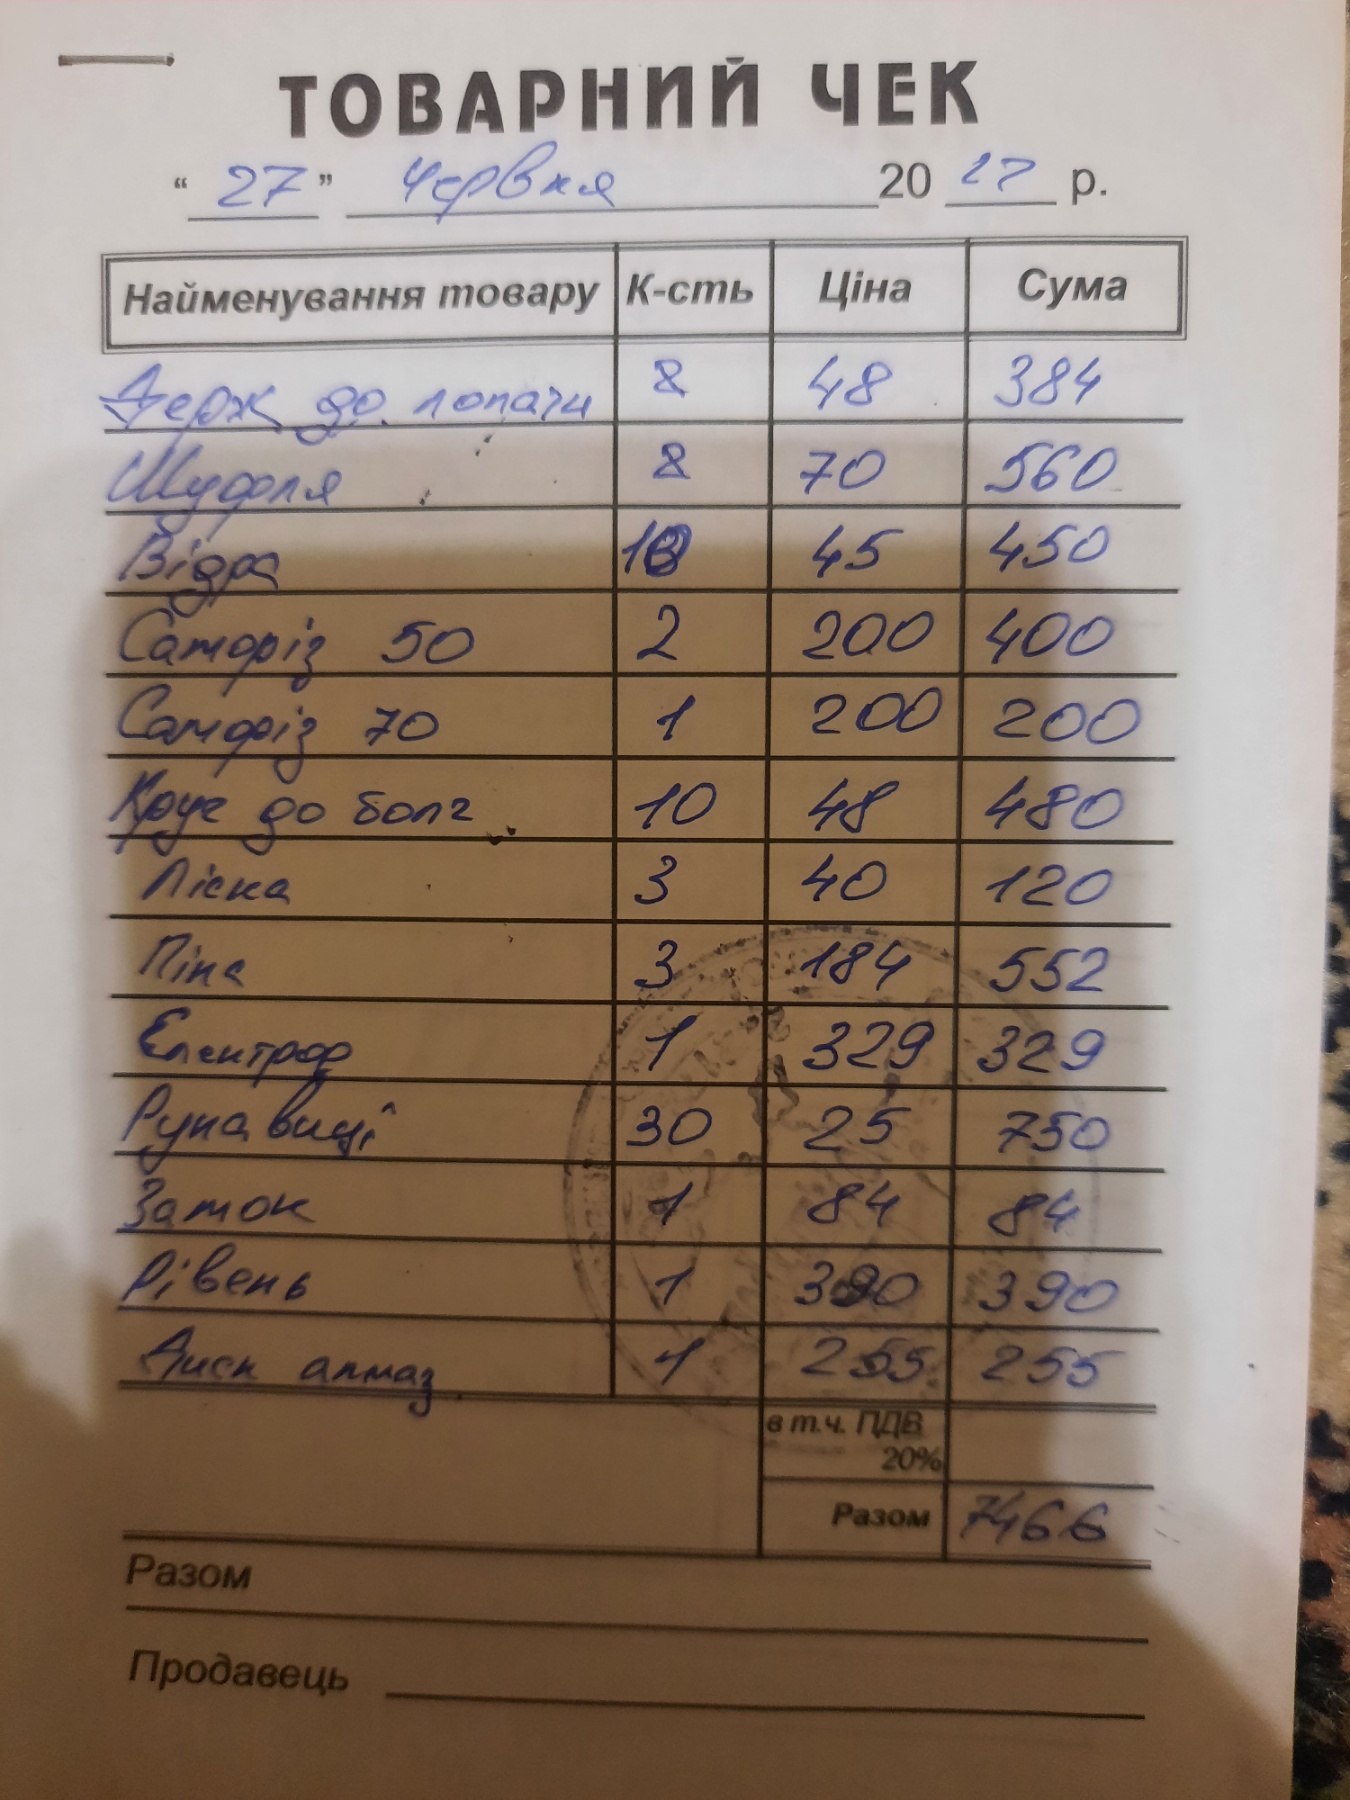 ТОВАРНИЙ ЧЕК
" 27 " Червня 20 р.
Найменування товару К-сть Ціна Сума
Держ до лопати 8 48 384
Шуфля 8 70 560
Відра 10 45 450
Саморіз 50 2 200 400
Саморіз 70 1 200 200
Круг до болг 10 48 480
Ліска 3 40 120
Піна 3 184 552
Електрод 1 329 329
Рукавиці 30 25 750
Замок 1 84 84
Рівень 1 390 390
Диск алмаз 1 255 255
в т.ч. ПДВ
20%
Разом 7466
Разом
Продавець